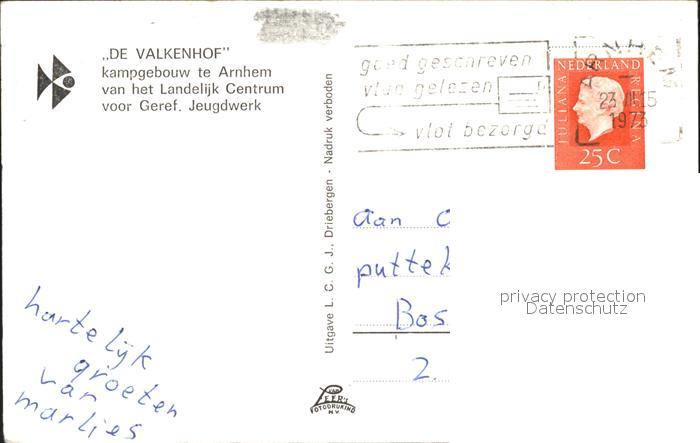 „DE VALKENHOF"
kampgebouw te Arnhem
van het Landelijk Centrum
voor Geref. Jeugdwerk
goed geschreven
vlug gelezen
vlot bezorgd
ARNHEM
23 VII 15
1973
NEDERLAND
JULIANA REGINA
25 C
Uitgave L. C. G. J., Driebergen - Nadruk verboden
aan
Bos
2.
privacy protection
Datenschutz
hartelijk
groeten
van
marlies
VAN
LEER'S
FOTODRUKIND
N.V.